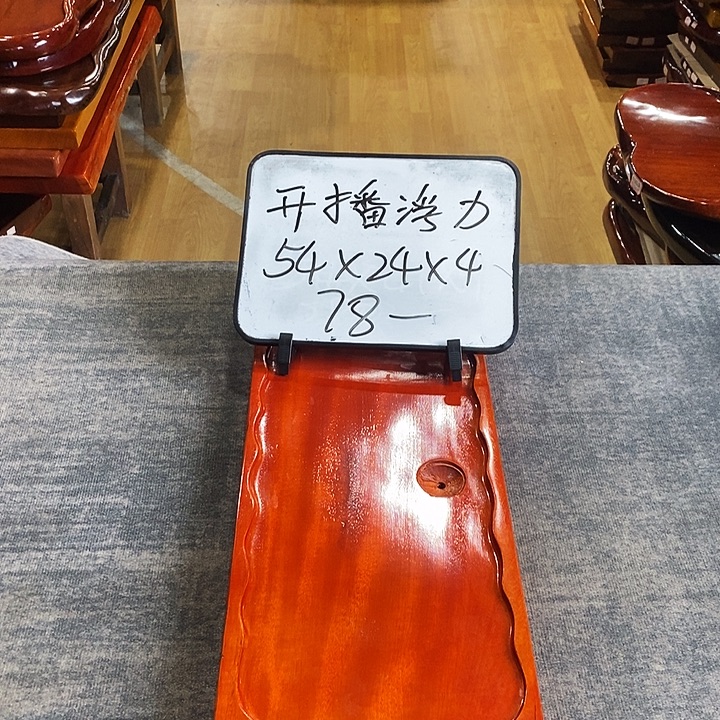 开播涝力
54×24×4
78一